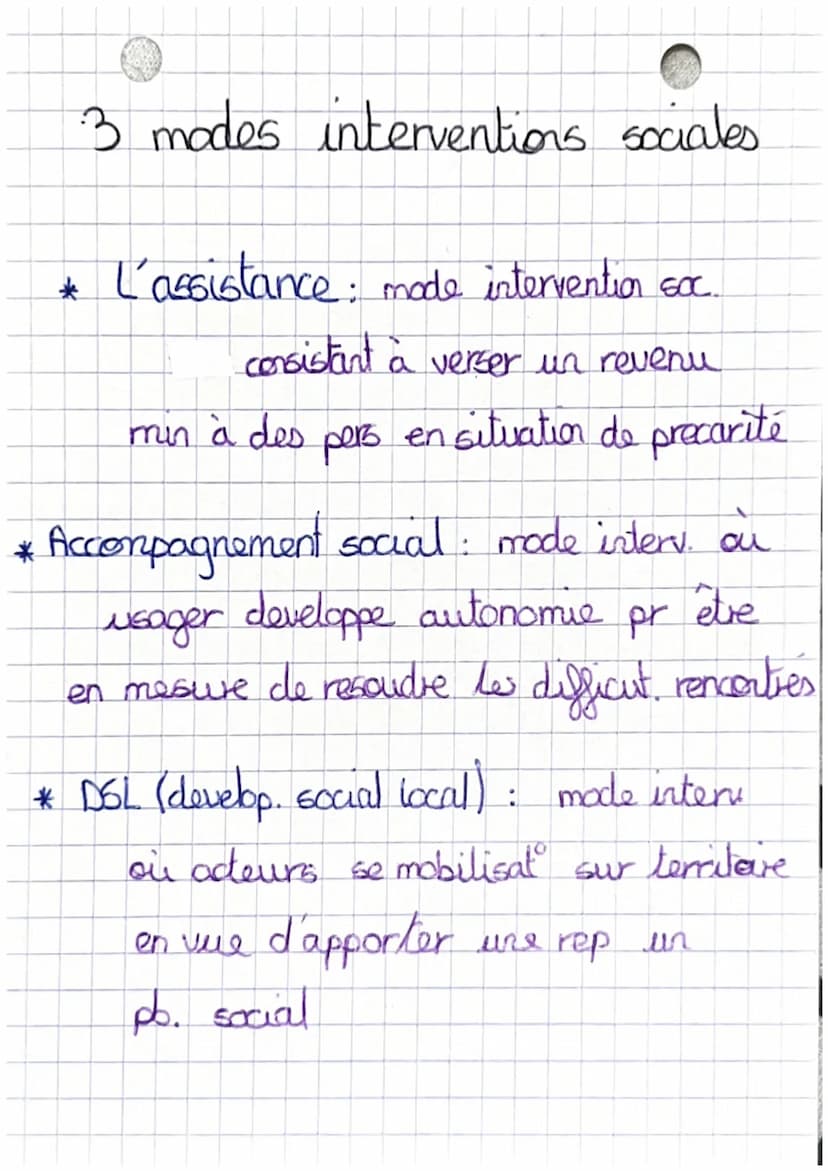 3 modes interventions sociales
* L'assistance : mode intervention soc.
consistant à verser un revenu
min à des pers en situation de precarité
* Accompagnement social : mode interv. où
usager developpe autonomie pr être
en mesure de resoudre les difficut. rencontrés
* DSL (develop. social local) : mode interv
où acteurs se mobilisat° sur territoire
en vue d'apporter une rep un
pb. social